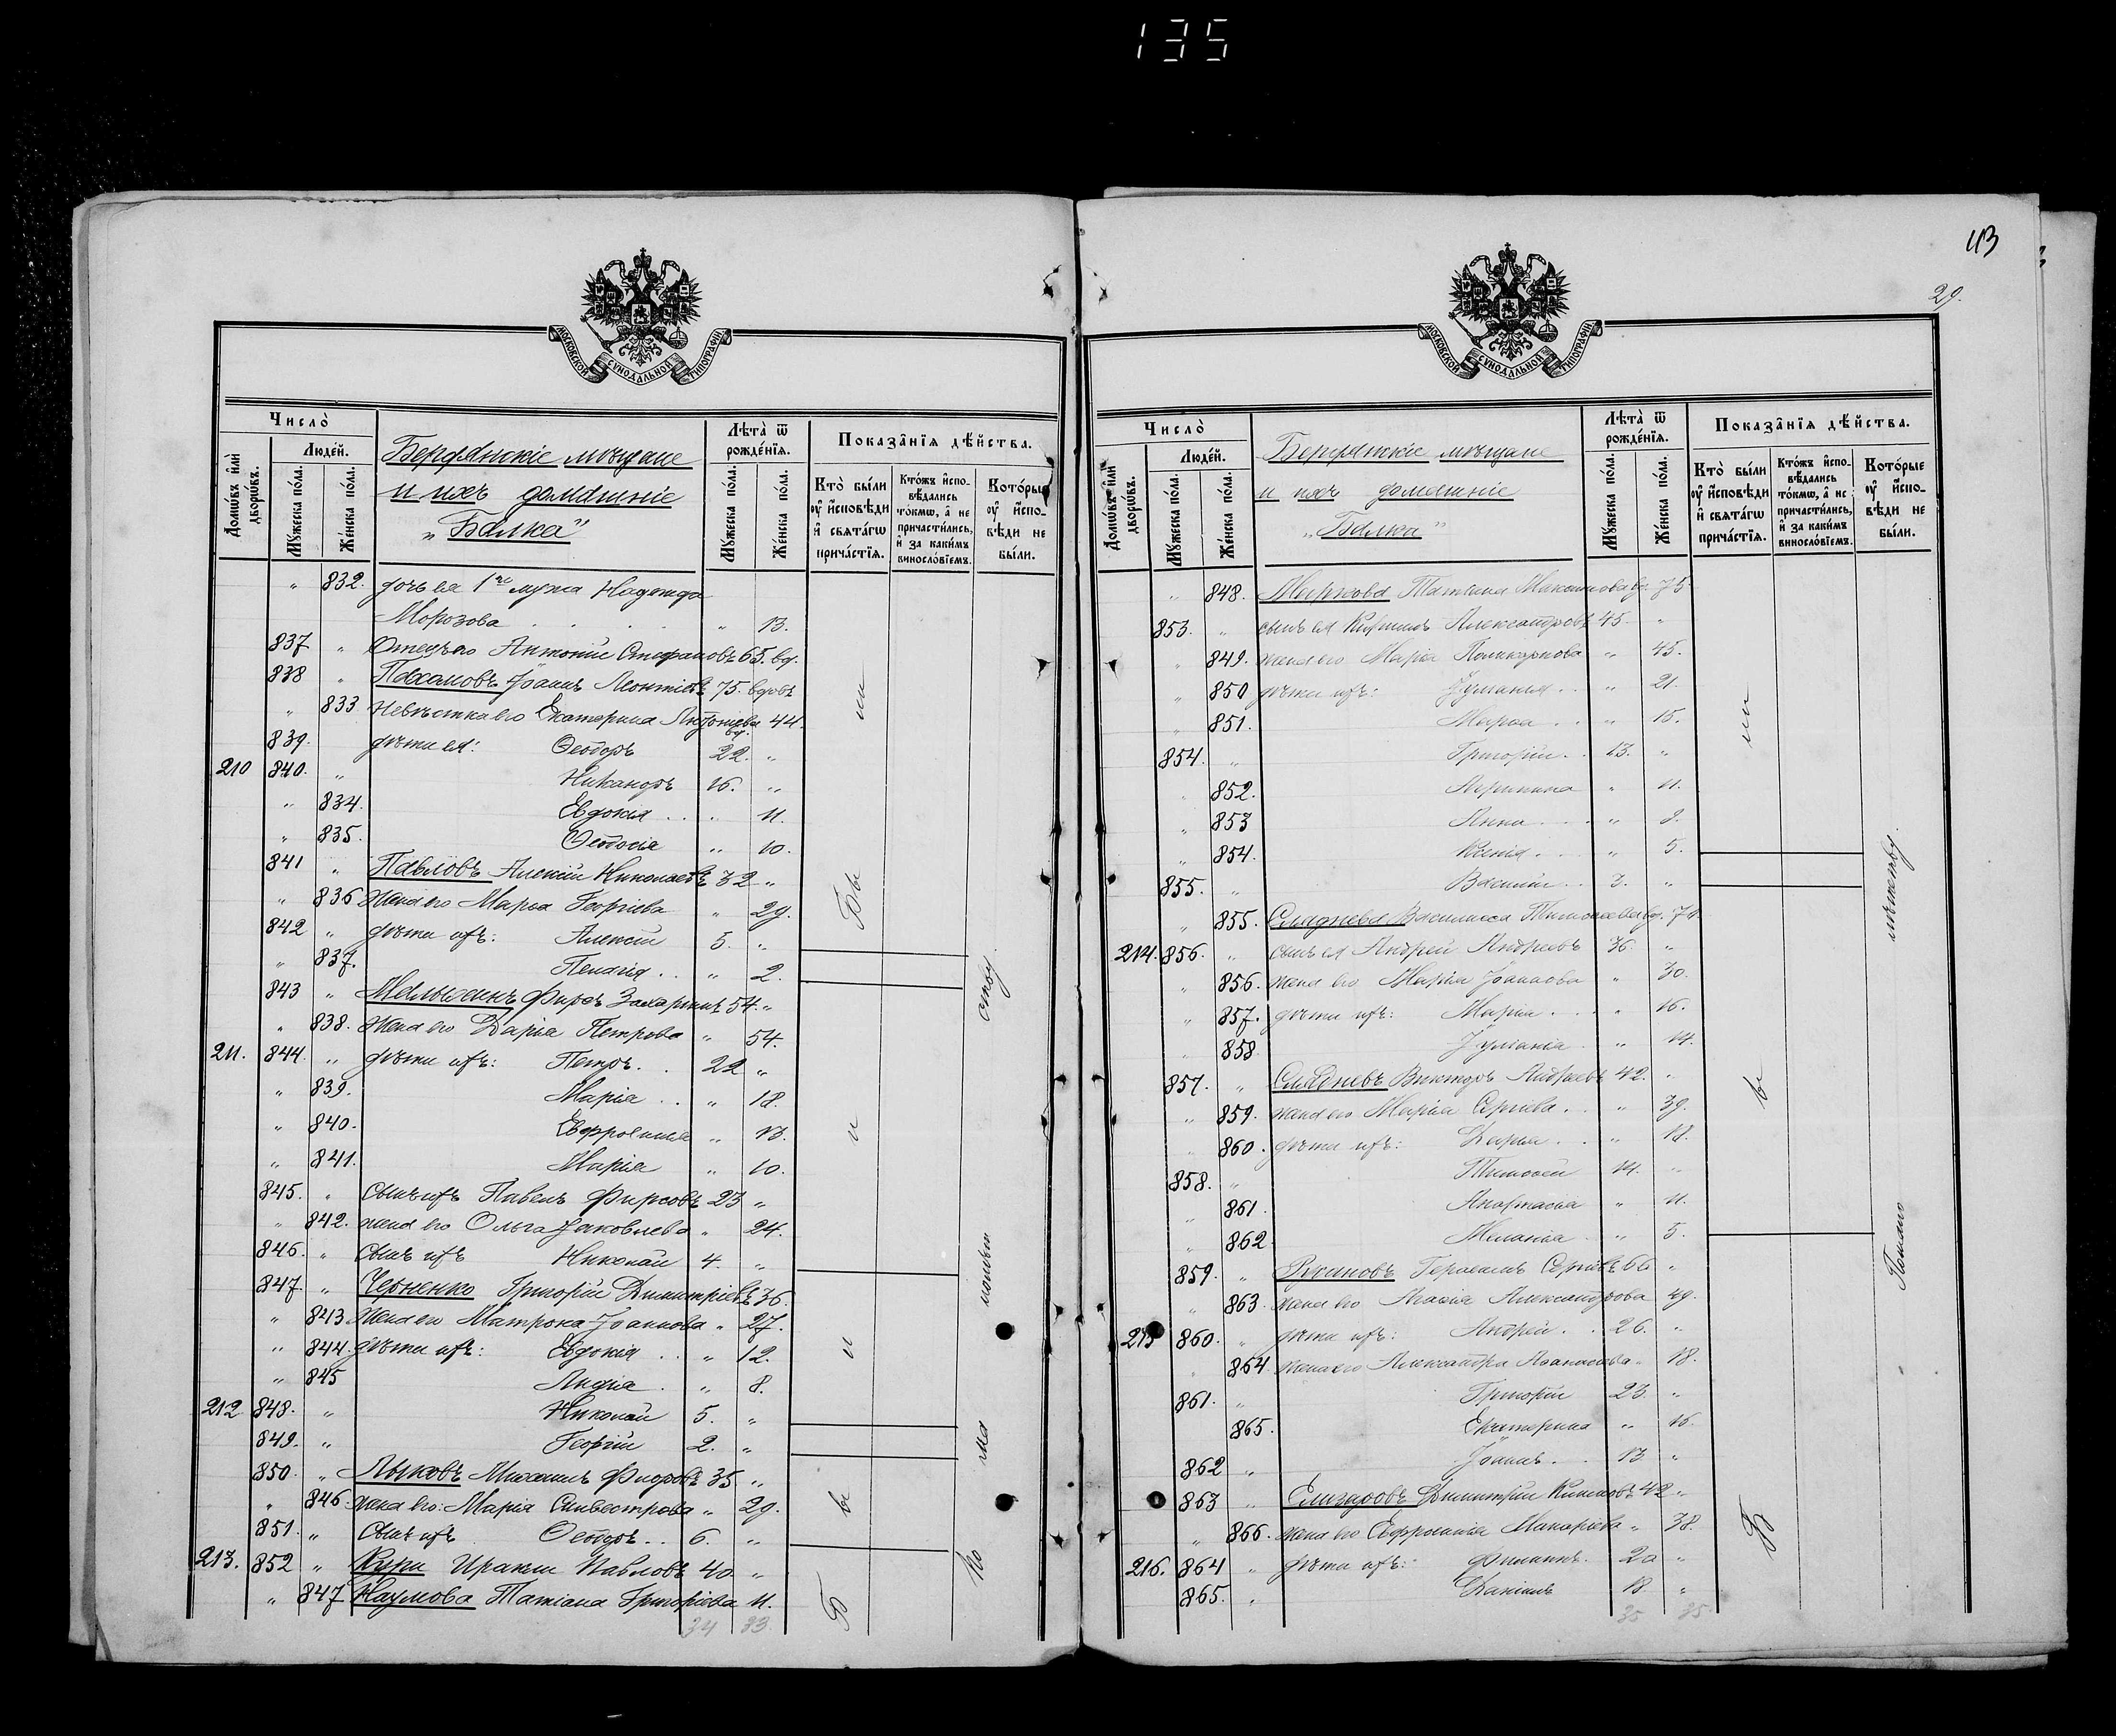 135
МОСКОВСКОЙ СѴНОДАЛЬНОЙ ТИПОГРАФІИ
Число̀
Людéй.
Домѡ́въ и҆лѝ дворѡ́въ.
Мꙋ́жеска по́ла.
Же́нска по́ла.
Бердянскіе мѣщане
и ихъ домашніе
„Балка"
Лѣта̀ ѿ рожде́нїя.
Мꙋ́жеска по́ла.
Же́нска по́ла.
Показа̑нїя дѣ́йства.
Кто̀ бы́ли ᲂу҆ и҆́сповѣди и҆ свята́гѡ прича́стїя.
Кто́жъ и҆спо-вѣ́дались то́кмѡ, а҆ не причасти́лись, и҆ за каки́мъ винослові́емъ.
Кото́рые ᲂу҆ и҆́спо-вѣди не бы́ли.
„ 832. дочь ея 1го мужа Надежда
Морозова . . . . „ 13.
837 „ Отецъ его Антоній Стефановъ 65. вд.
838 „ Пахомовъ Іоаннъ Леонтіевъ 75. вдовъ
„ 833 невѣстка его Екатерина Антоніева вд. 44.
839. дѣти ея: Ѳеодоръ 22. „
210 840. „ Никаноръ 16. „
„ 834. Евдокія . . „ 11.
„ 835. Ѳеодосія „ 10.
841 „ Павловъ Алексій Николаевъ 32 „
„ 836 жена его Марѳа Георгіева „ 29.
842 „ дѣти ихъ: Алексій 5. „
„ 837. Пелагія . . „ 2.
843 „ Малыхинъ Фирсъ Захаріинъ 54. „
„ 838. жена его Дарія Петрова „ 54.
211. 844. „ дѣти ихъ: Петръ . . 22 „
„ 839. Марія . . „ 18.
„ 840. Евфросинія „ 13.
„ 841. Марія „ 10.
845. „ Сынъ ихъ Павелъ Фирсовъ 23 „
„ 842. жена его Ольга Іаковлева „ 24.
846. „ Сынъ ихъ Николай 4. „
847. „ Черненко Григорій Димитріевъ 36.
„ 843. жена его Матрона Іоаннова „ 27.
„ 844. дѣти ихъ: Евдокія . . „ 12.
„ 845 Лидія . „ 8.
212 848. „ Николай 5. „
849. „ Георгій 2. „
850. „ Лыковъ Михаилъ 35 „
„ 846. жена его: Марія Сильвестрова „ 29.
851. „ Сынъ ихъ Ѳеодоръ . . 6. „
213. 852 „ Ираклій Павловъ 40 „
„ 847 Наумова Татіана Григоріева 11.
34 33.
Бы
ли
Б
ы
ли
По
ма
43
29.
МОСКОВСКОЙ СѴНОДАЛЬНОЙ ТИПОГРАФІИ
Число̀
Людéй.
Домѡ́въ и҆лѝ дворѡ́въ.
Мꙋ́жеска по́ла.
Же́нска по́ла.
Бердянскіе мѣщане
и ихъ домашніе
„Балка"
Лѣта̀ ѿ рожде́нїя.
Мꙋ́жеска по́ла.
Же́нска по́ла.
Показа̑нїя дѣ́йства.
Кто̀ бы́ли ᲂу҆ и҆́сповѣди и҆ свята́гѡ прича́стїя.
Кто́жъ и҆спо-вѣ́дались то́кмѡ, а҆ не причасти́лись, и҆ за каки́мъ винослові́емъ.
Кото́рые ᲂу҆ и҆́спо-вѣди не бы́ли.
„ 848. Татіана Максимова вд. 75
853. „ сынъ ея Кириллъ Александровъ 45. „
„ 849. жена его Марія Поликарпова „ 45.
„ 850 дѣти ихъ: Іуліанія . . „ 21.
„ 851. Марѳа . . „ 15.
854. „ Григорій . . 13. „
„ 852. Агриппина „ 11.
„ 853 Анна . . . „ 8.
„ 854. Ксенія . . „ 5.
855. „ Василій . . 3. „
„ 855. Сладнева Василисса вд.
214. 856. „ сынъ ея Андрей Андреевъ 36. „
„ 856. жена его Марія Іоаннова „ 30.
„ 857. дѣти ихъ: Марія . . . „ 16.
„ 858 Іуліанія . „ 14.
857. „ Сладневъ Викторъ Андреевъ 42. „
„ 859. жена его Марія Сергіева . . „ 39.
„ 860. дѣти ихъ: Дарія . . „ 18.
858. „ Тимоѳей 14. „
„ 861. Анастасія „ 11.
„ 862. Меланія . „ 5.
859. „ Русиновъ Герасимъ Сергіевъ 66 „
„ 863. жена его Агаѳія Александрова 49.
215 860. „ дѣти ихъ: Андрей . . 26. „
„ 864. жена его Александра Аѳанасіева „ 18.
861. „ Григорій 23. „
865. Екатерина „ 16.
862 „ Іоаннъ . . 13 „
863 „ Елизаровъ Димитрій 42 „
„ 866. жена его Евфросинія Макаріева „ 38.
216. 864 „ дѣти ихъ: Филиппъ . 20 „
865. „ Даніилъ 18 „
35 35.
Б
ы
ли